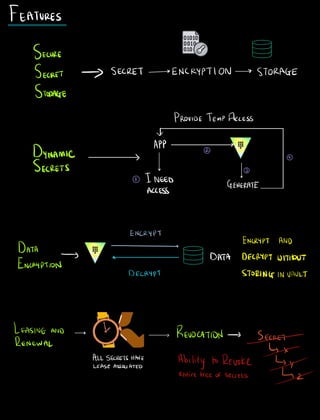 FEATURES
SECURE
SECRET
STORAGE
SECRET → ENCRYPTION → STORAGE
PROVIDE TEMP ACCESS
DYNAMIC
SECRETS
APP
②
① I NEED
ACCESS
③
GENERATE
④
DATA
ENCRYPTION
ENCRYPT
DECRYPT
DATA
ENCRYPT AND
DECRYPT WITHOUT
STORING IN VAULT
LEASING AND
RENEWAL
ALL SECRETS HAVE
LEASE ASSOCIATED
REVOCATION
Ability to REVOKE
entire tree of secrets
SECRET
X
Y
Z